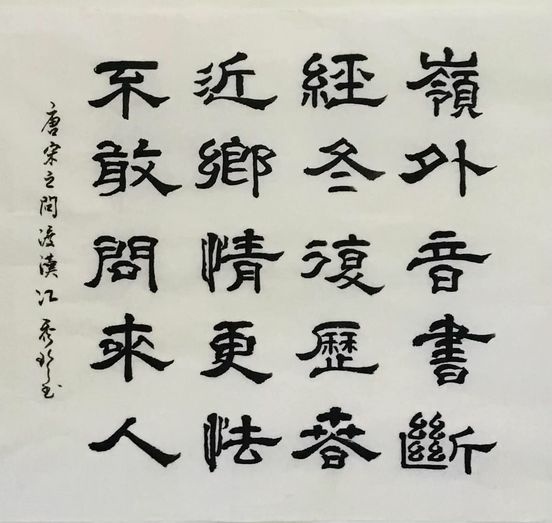 嶺外音書斷
經冬復歷春
近鄉情更怯
不敢問來人
唐宋之問渡漢江